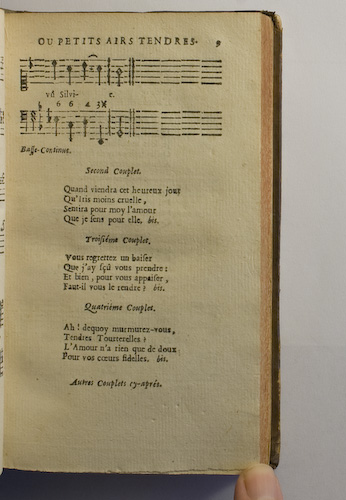 OU PETITS AIRS TENDRES. 9
vû Silvi- e.
6 6 4 3
Basse-Continue.
Second Couplet.
Quand viendra cet heureux jour
Qu'Iris moins cruelle,
Sentira pour moy l'amour
Que je sens pour elle. bis.
Troisiéme Couplet.
Vous regrettez un baiser
Que j'ay sçû vous prendre:
Et bien, pour vous appaiser,
Faut-il vous le rendre? bis.
Quatriéme Couplet.
Ah! dequoy murmurez-vous,
Tendres Tourterelles?
L'Amour n'a rien que de doux
Pour vos cœurs fidelles. bis.
Autres Couplets cy-aprés.